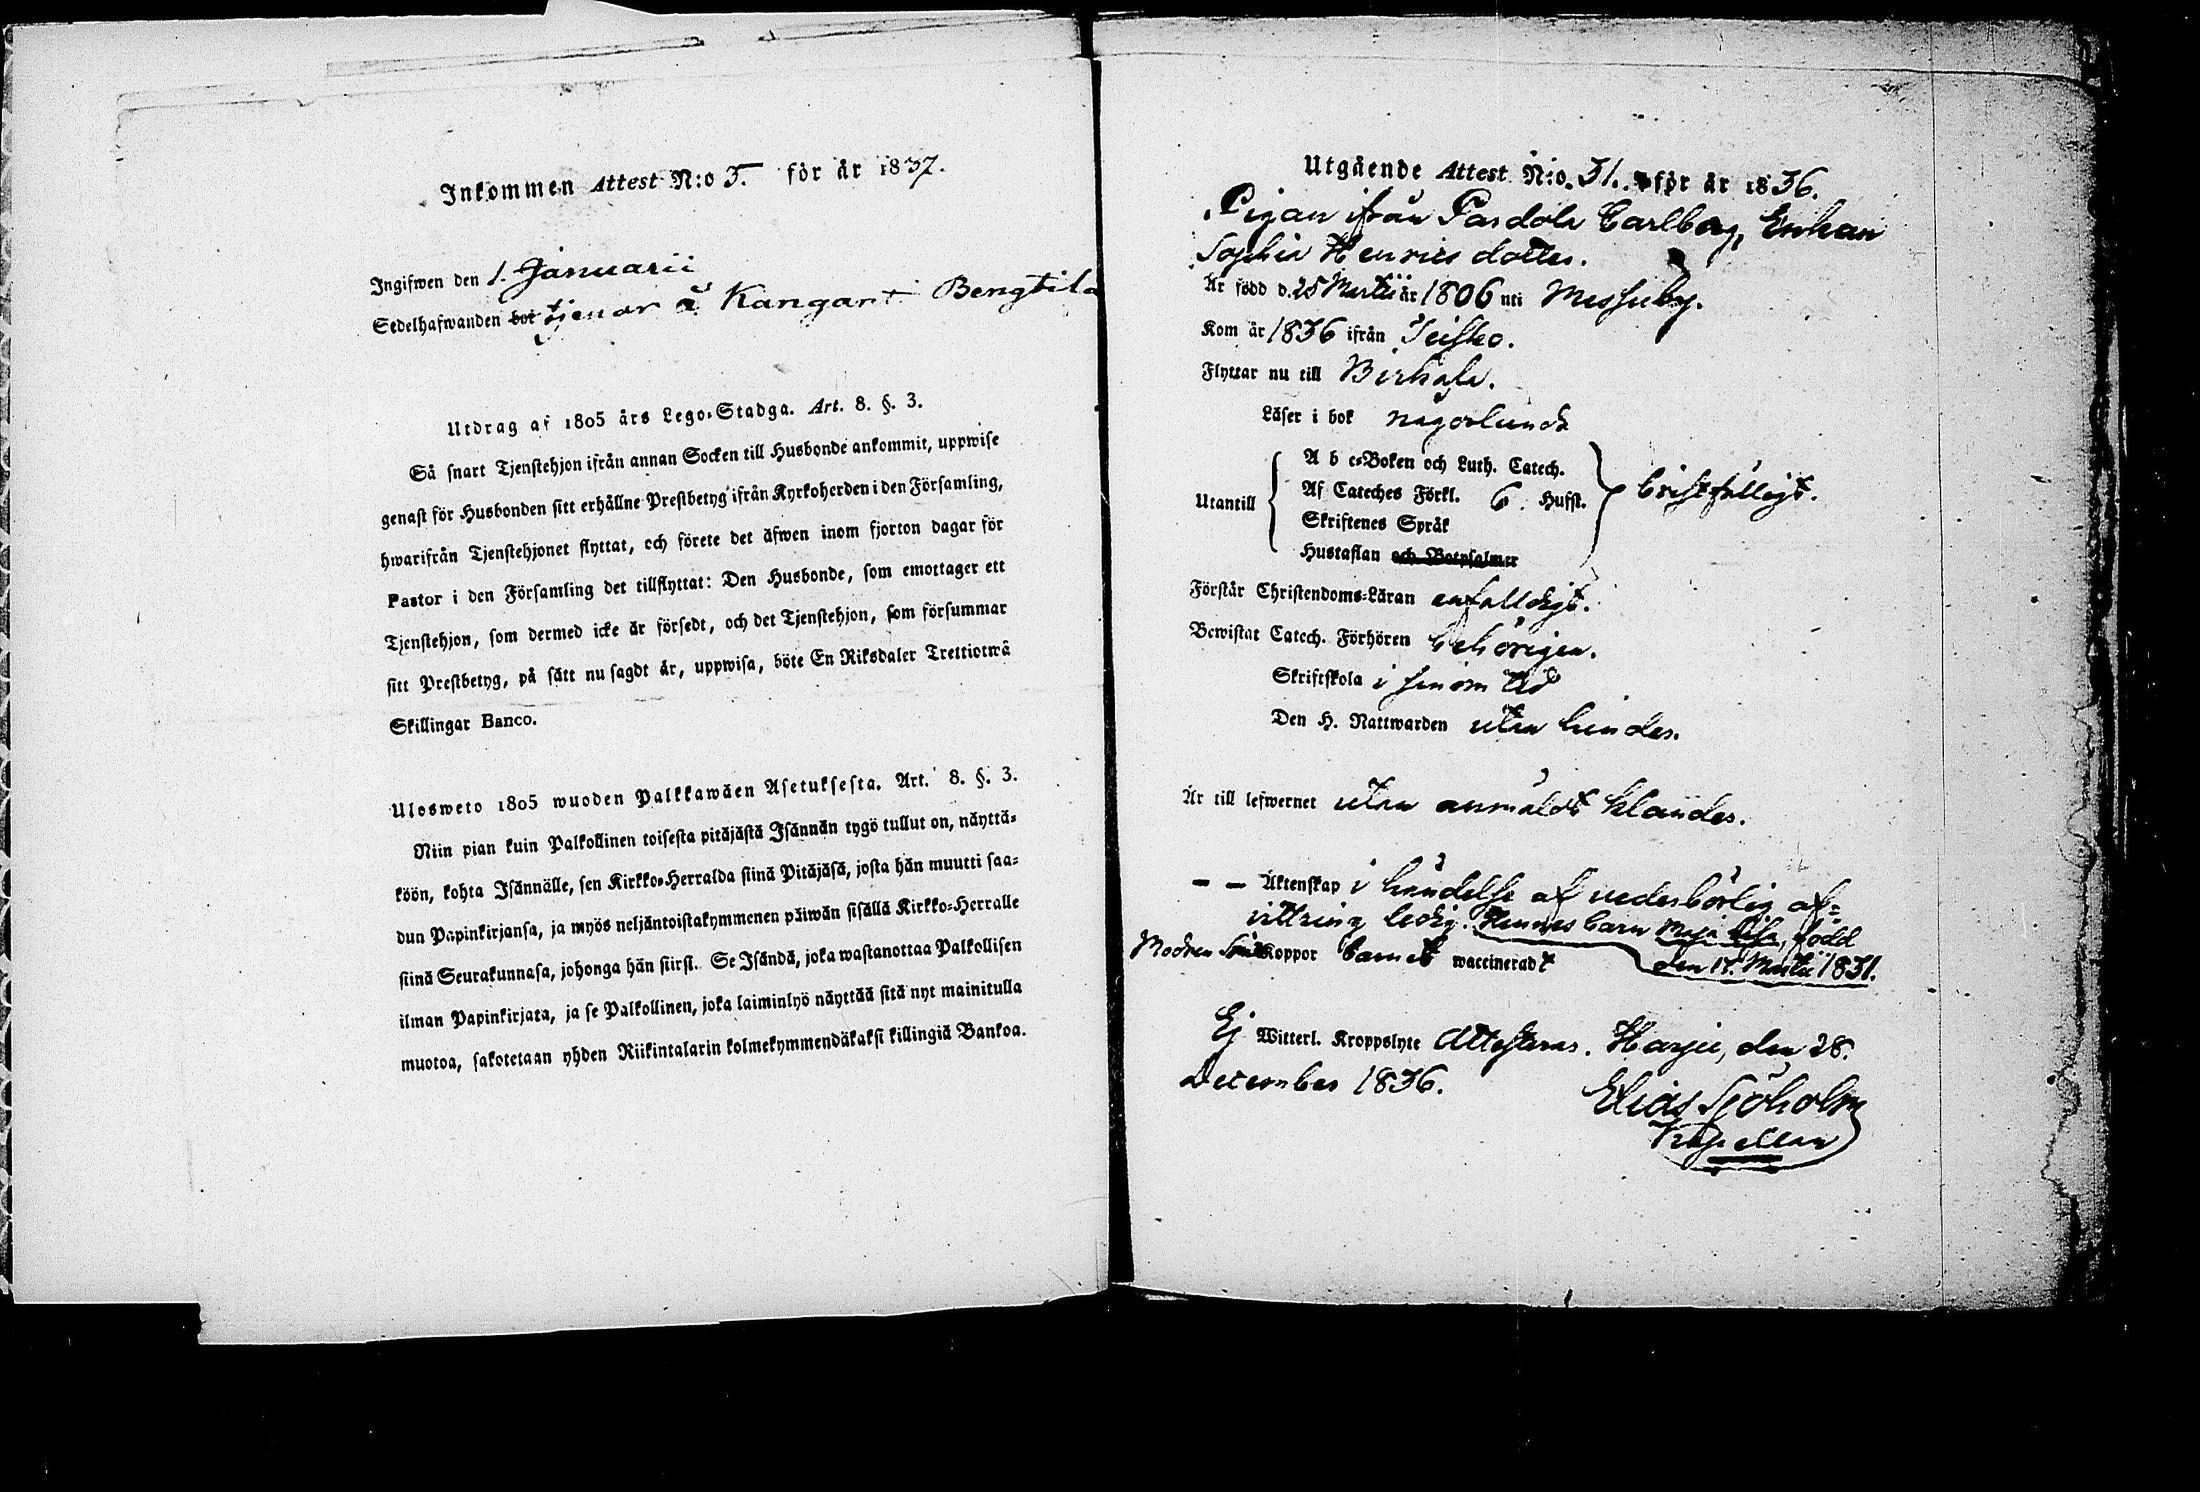 Inkommen Attest N:o 5. för år 1837.
Ingifwen den 1. Januarii
Sedelhafwanden bor tjenar å Kangari Bengtila
Utdrag af 1805 års Lego-Stadga. Art. 8. §. 3.
Så snart Tjenstehjon ifrån annan Socken till Husbonde ankommit, uppwise
genast för Husbonden sitt erhållne Prestbetyg ifrån Kyrkoherden i den Församling,
hwarifrån Tjenstehjonet flyttat, och förete det äfwen inom fjorton dagar för
Pastor i den Församling det tillflyttat: Den Husbonde, som emottager ett
Tjenstehjon, som dermed icke är försedt, och det Tjenstehjon, som försummar
sitt Prestbetyg, på sätt nu sagdt är, uppwisa, böte En Riksdaler Trettiotwå
Skillingar Banco.
Ulosweto 1805 wuoden Palkkawäen Asetuksesta. Art. 8. §. 3.
Niin pian kuin Palkollinen toisesta pitäjästä Isännän tygö tullut on, näyttä-
köön, kohta Isännälle, sen Kirkko-Herralda siinä Pitäjäsä, josta hän muutti saa-
dun Papinkirjansa, ja myös neljäntoistakymmenen päiwän sisällä Kirkko-Herralle
siinä Seurakunnasa, johonga hän siirsi. Se Isändä, joka wastanottaa Palkollisen
ilman Papinkirjata, ja se Palkollinen, joka laiminlyö näyttää sitä nyt mainitulla
muotoa, sakotetaan yhden Riikintalarin kolmekymmendäkaksi killingiä Bankoa.
Utgående Attest N:o. 31. för år 1836.
Pigan ifrån Pardola Carlberg, Enkan
Sophia Henricsdotter.
Är född d. 25 Martii år 1806 uti Messuby.
Kom år 1836 ifrån Teisko.
Flyttar nu till Birkala.
Läser i bok någorlunda
A b c-Boken och Luth. Catech.
Utantill Af Cateches Förkl. 6. Hufst. bristfälligt.
Skriftenes Språk
Hustaflan och Botpsalmer
Förstår Christendoms-Läran enfalldigt.
Bewistat Catech. Förhören behörigen.
Skriftskola i sinom tid
Den H. Nattwarden utan hinder.
Är till lefwernet utan anmäldt klander.
— — Äktenskap i händelse af vederbörlig af-
vittring ledig. Hennes barn Maja Lisa, född
den 17. Martii 1831.
Modren Koppor barnet waccineradt
Ej Witterl. Kroppslyte Attesteras. Harju, den 28.
December 1836.
Elias Sjöholm
Kapellan